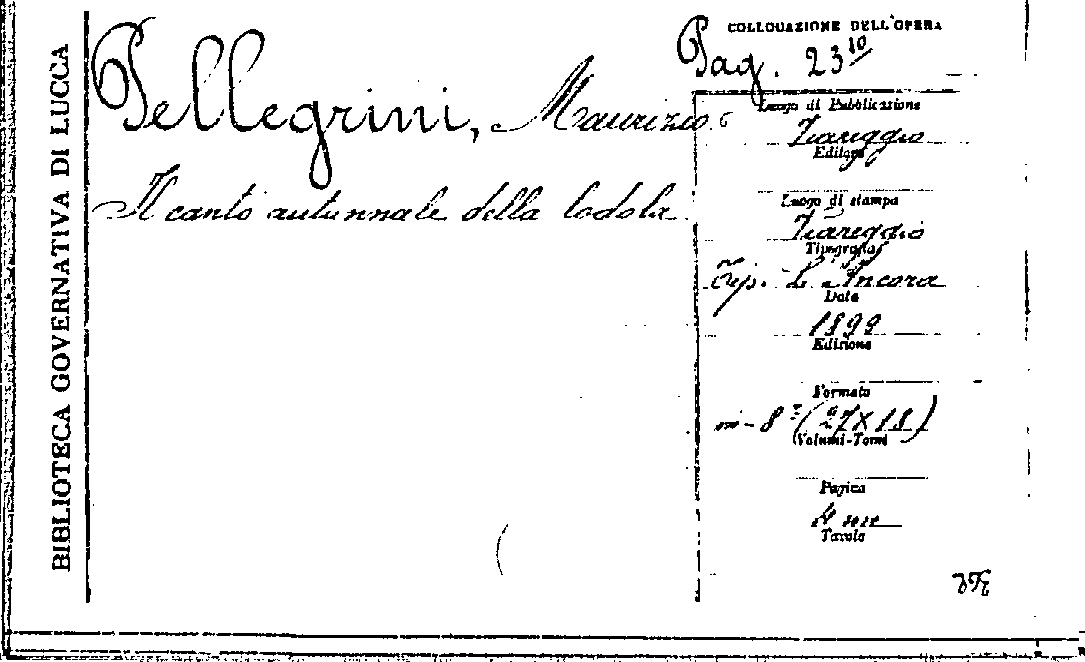 BIBLIOTECA GOVERNATIVA DI LUCCA
Pellegrini, Maurizio
Il canto autunnale della lodola
COLLOCAZIONE DELL'OPERA
Pag. 23¹⁰
Luogo di Pubblicazione
Viareggio
Editore
Luogo di stampa
Viareggio
Tipografia
Tip. L'Ancora
Data
1899
Edizione
Formato
in-8° (27×18)
Volumi-Tomi
Pagina
4 nn
Tavole